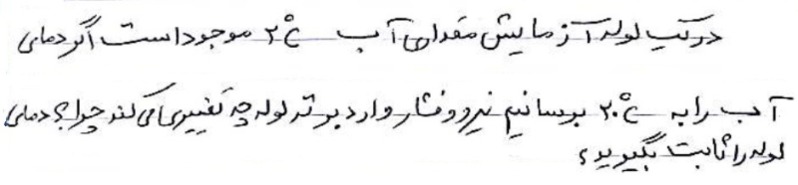 در یک لوله آزمایش مقداری آب ۲°C موجود است اگر دمای
آب را به ۲۰°C برسانیم نیرو و فشار وارد بر ته لوله چه تغییری می کند چرا؟ دمای
لوله را ثابت بگیرید؟